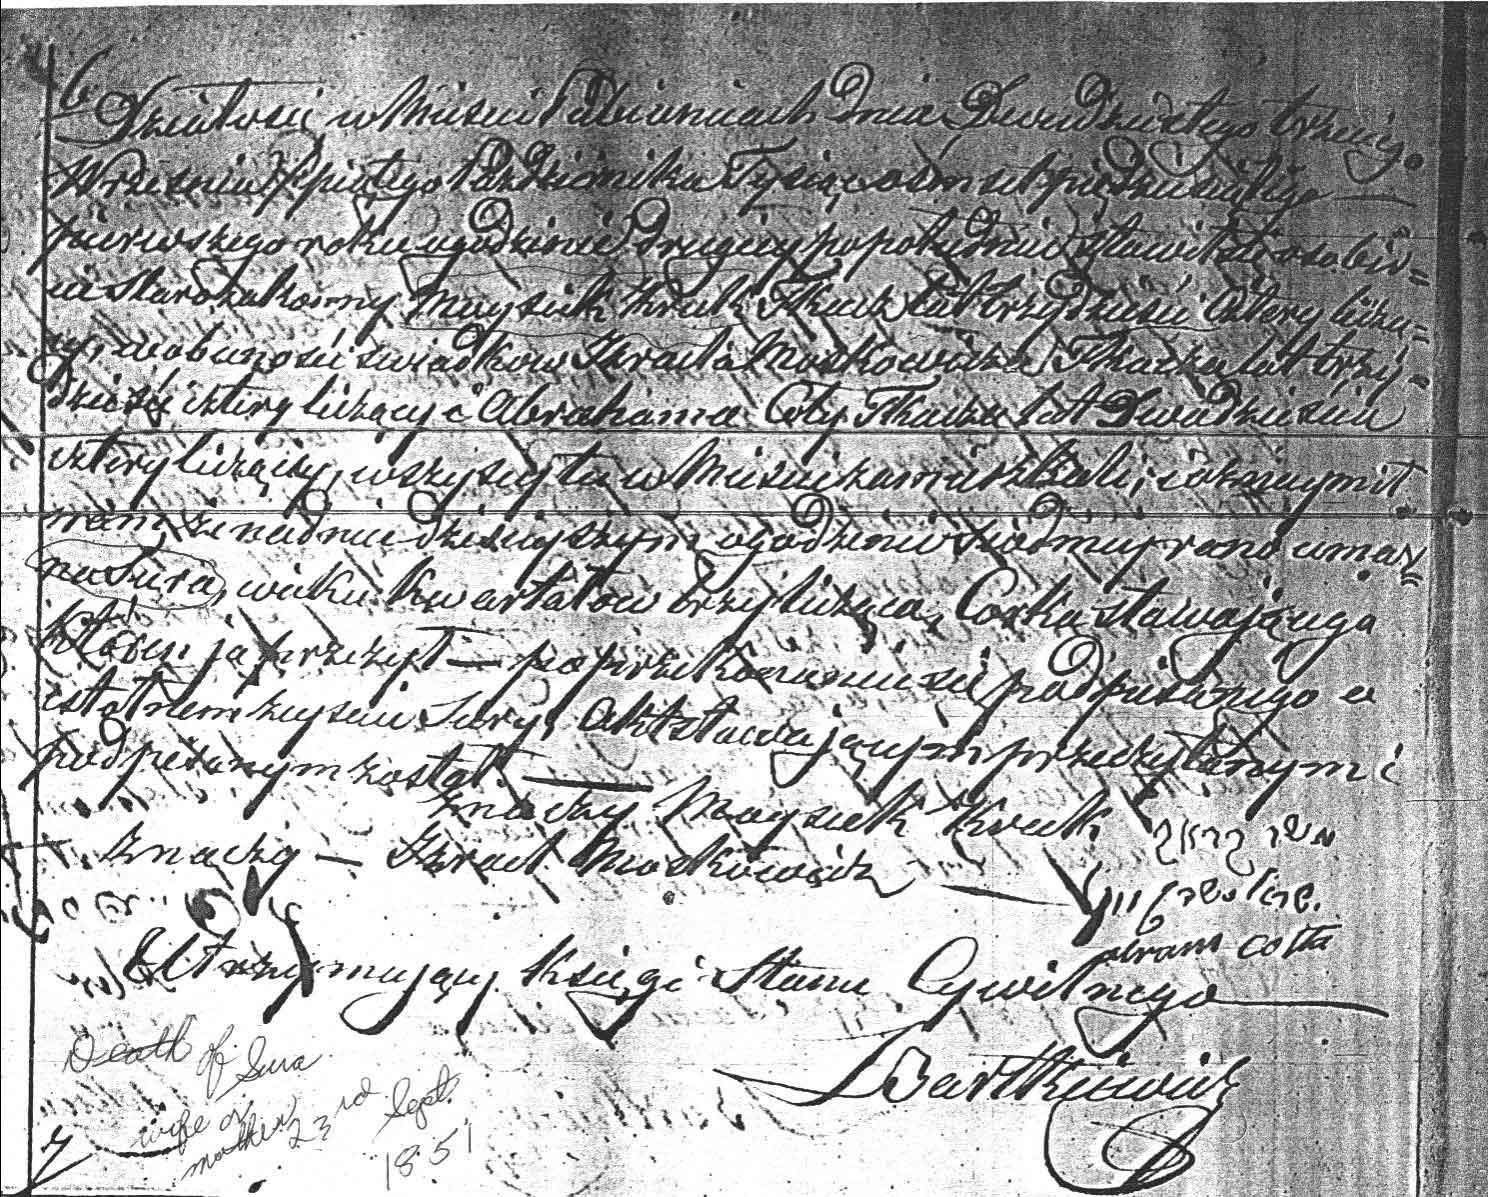 6. Działo się w Mieście Pabianicach Dnia Dwudziestego trzeciego
Września / piątego Października Tysiąc ośmset pięćdziesiątego
pierwszego roku o godzinie drugiej popołudniu, stawił się osobiś=
cie starozakonny Moysiek Kruk Tkacz lat trzydzieści cztery liczą=
cy, w obecności świadków Izraela Moskowicza Tkacza lat trzy=
dzieści cztery liczący i Abrahama Coty Tkacza lat Dwadzieścia
cztery liczący, wszyscy tu w Mieście zamieszkali, i oznaymił
nam, że na dniu dzisieyszym o godzinie siódmey rano umar=
ła Sura, wieku kwartałów trzy licząca, Córka stawającego
który ją przeżył — po przekonaniu się podpisanego o
istotnem zeyściu Sury, Akt stawającym przeczytanym i
podpisanym został. —
Znaczy Moysiek Kruk
Znaczą — Izrael Moskowicz
abram cotta
Utrzymujący Księgi Stanu Cywilnego
Bartkiewicz
Death of Sura
wife or
mother 23rd Sept.
1851
7